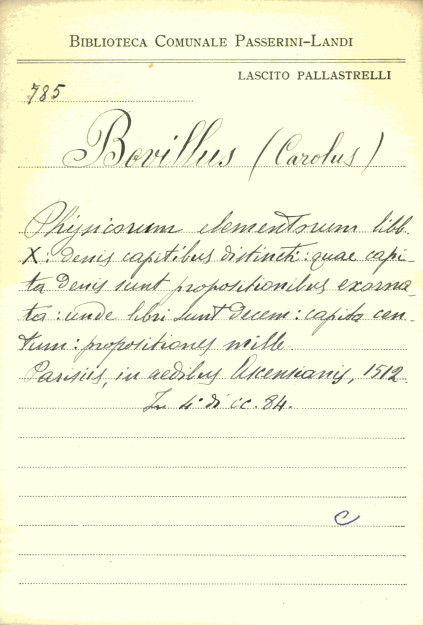 BIBLIOTECA COMUNALE PASSERINI-LANDI
LASCITO PALLASTRELLI
785
Bovillus (Carolus)
Physicorum elementorum libb.
X: denis capitibus distincti: quae capi-
ta denis sunt propositionibus exorna-
ta: unde libri sunt decem: capita cen-
tum: propositiones mille.
Parisiis, in aedibus Ascensianis, 1512.
In 4° di cc. 84.
C